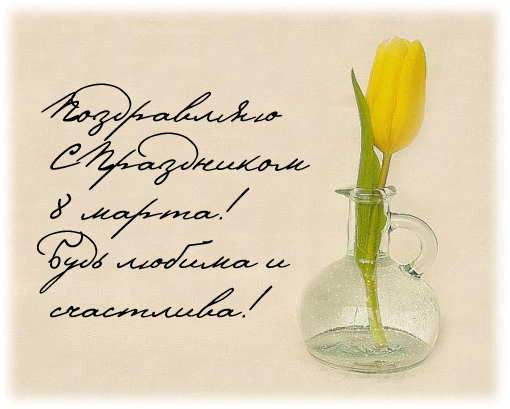 Поздравляю
С Праздником
8 марта!
Будь любима и
счастлива!